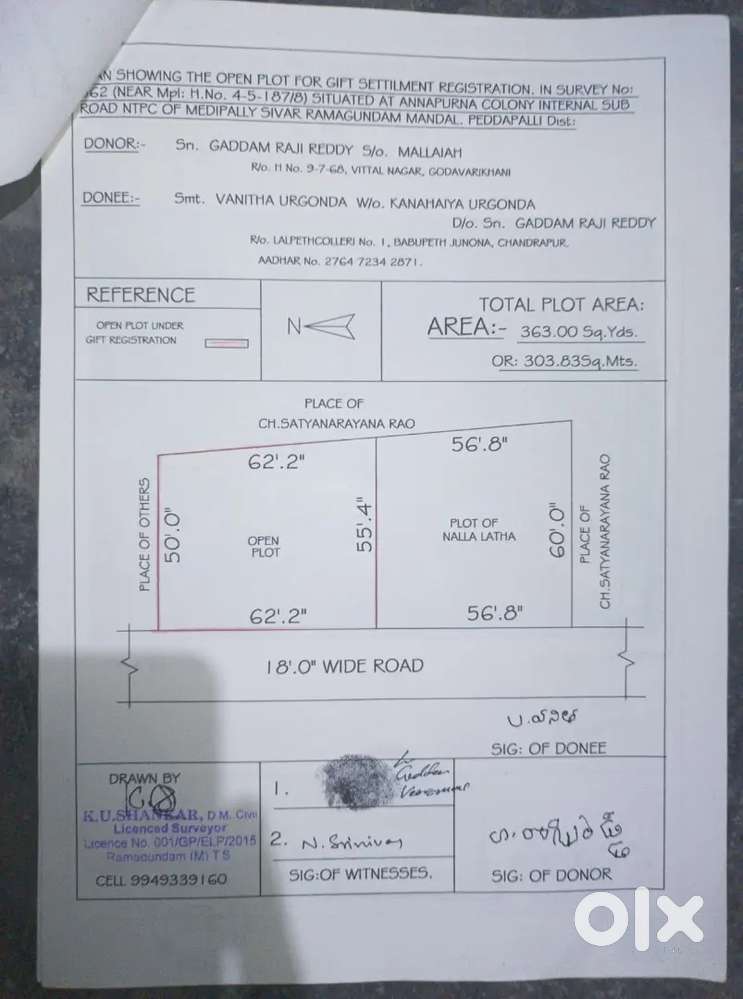 AN SHOWING THE OPEN PLOT FOR GIFT SETTILMENT REGISTRATION. IN SURVEY No:
62 (NEAR Mpl: H.No. 4-5-187/8) SITUATED AT ANNAPURNA COLONY INTERNAL SUB
ROAD NTPC OF MEDIPALLY SIVAR RAMAGUNDAM MANDAL. PEDDAPALLI Dist:
DONOR:- Sri. GADDAM RAJI REDDY S/o. MALLAIAH
R/o. H No. 9-7-68, VITTAL NAGAR, GODAVARIKHANI
DONEE:- Smt. VANITHA URGONDA W/o. KANAHAIYA URGONDA
D/o. Sri. GADDAM RAJI REDDY
R/o. LALPETHCOLLERI No. 1, BABUPETH JUNONA, CHANDRAPUR.
AADHAR No. 2764 7234 2871.
REFERENCE
OPEN PLOT UNDER
GIFT REGISTRATION
N
TOTAL PLOT AREA:
AREA:- 363.00 Sq.Yds.
OR: 303.83Sq.Mts.
PLACE OF
CH.SATYANARAYANA RAO
62'.2"
56'.8"
PLACE OF OTHERS
50'.0"
OPEN
PLOT
55'.4"
PLOT OF
NALLA LATHA
60'.0"
PLACE OF
CH.SATYANARAYANA RAO
62'.2"
56'.8"
18'.0" WIDE ROAD
SIG: OF DONEE
DRAWN BY
K.U.SHANKAR, D.M. Civil
Licenced Surveyor
Licence No. 001/GP/ELP/2015
Ramagundam (M) T S
CELL 9949339160
1. Gaddam
2. N. Srinivas
SIG:OF WITNESSES.
SIG: OF DONOR
olx